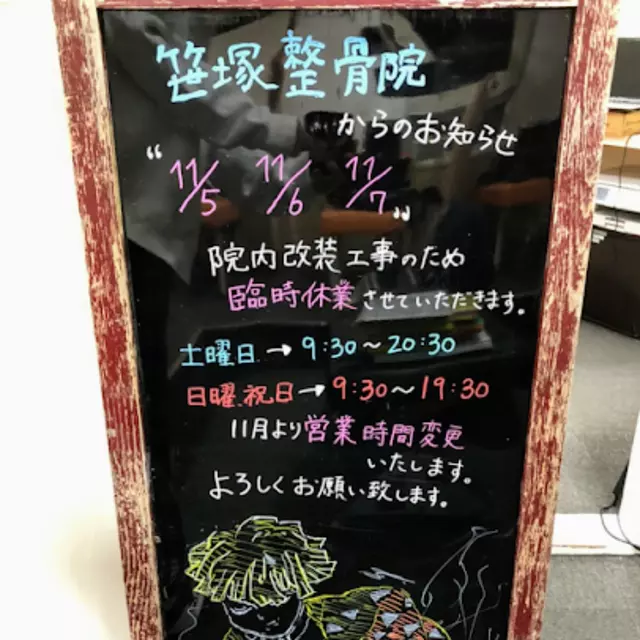 笹塚整骨院
からのお知らせ
“ 11/5 11/6 11/7 „
院内改装工事のため
臨時休業させていただきます。
土曜日→9:30～20:30
日曜、祝日→9:30～19:30
11月より営業時間変更
いたします。
よろしくお願い致します。